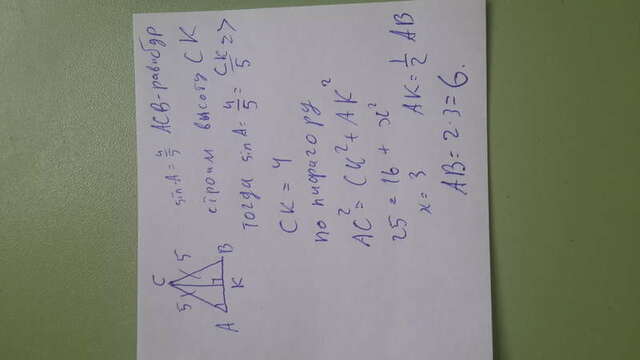 C
5 5
A K B
sin A = 4/5 ACB - равнобдр
строим высоту CK
тогда sin A = 4/5 = CK/5 =>
CK = 4
по пифагору
AC² = CK² + AK²
25 = 16 + x²
x = 3 AK = 1/2 AB
AB = 2·3 = 6.